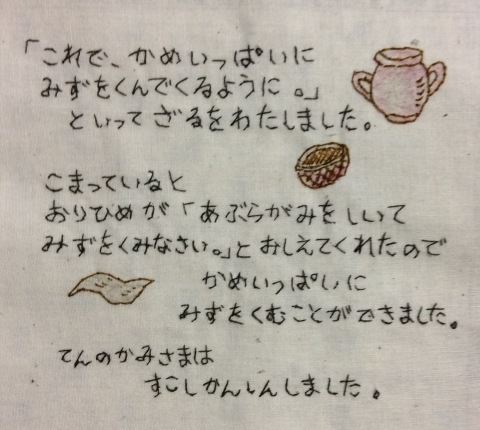 「これで、かめいっぱいに
みずをくんでくるように。」
といってざるをわたしました。
こまっていると
おりひめが「あぶらがみをしいて
みずをくみなさい。」とおしえてくれたので
かめいっぱいに
みずをくむことができました。
てんのかみさまは
すこしかんしんしました。